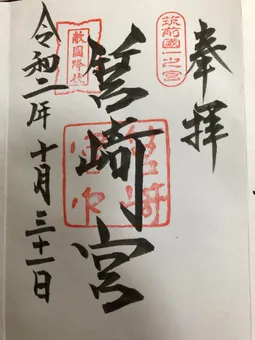 奉拝
筑前國一之宮
筥崎宮
敵國降伏
令和二年十月三十一日